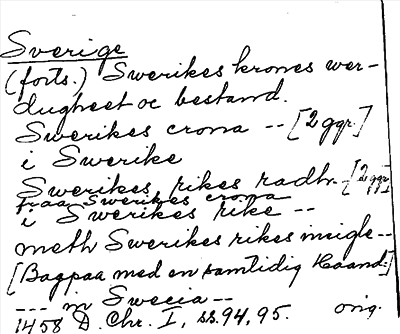 Sverige
(forts.) Swerikes krones wer-
dugheet oc bestand.
Swerikes crona -- [2 ggr.]
i Swerike
Swerikes rikes radh -- [2 ggr.]
fraa Swerikes crona
i Swerikes rike --
meth Swerikes rikes incigle --
[Bagpaa med en samtidig Haand:]
--- in Swecia --
1458 D. Chr. I, ss. 94, 95. orig.